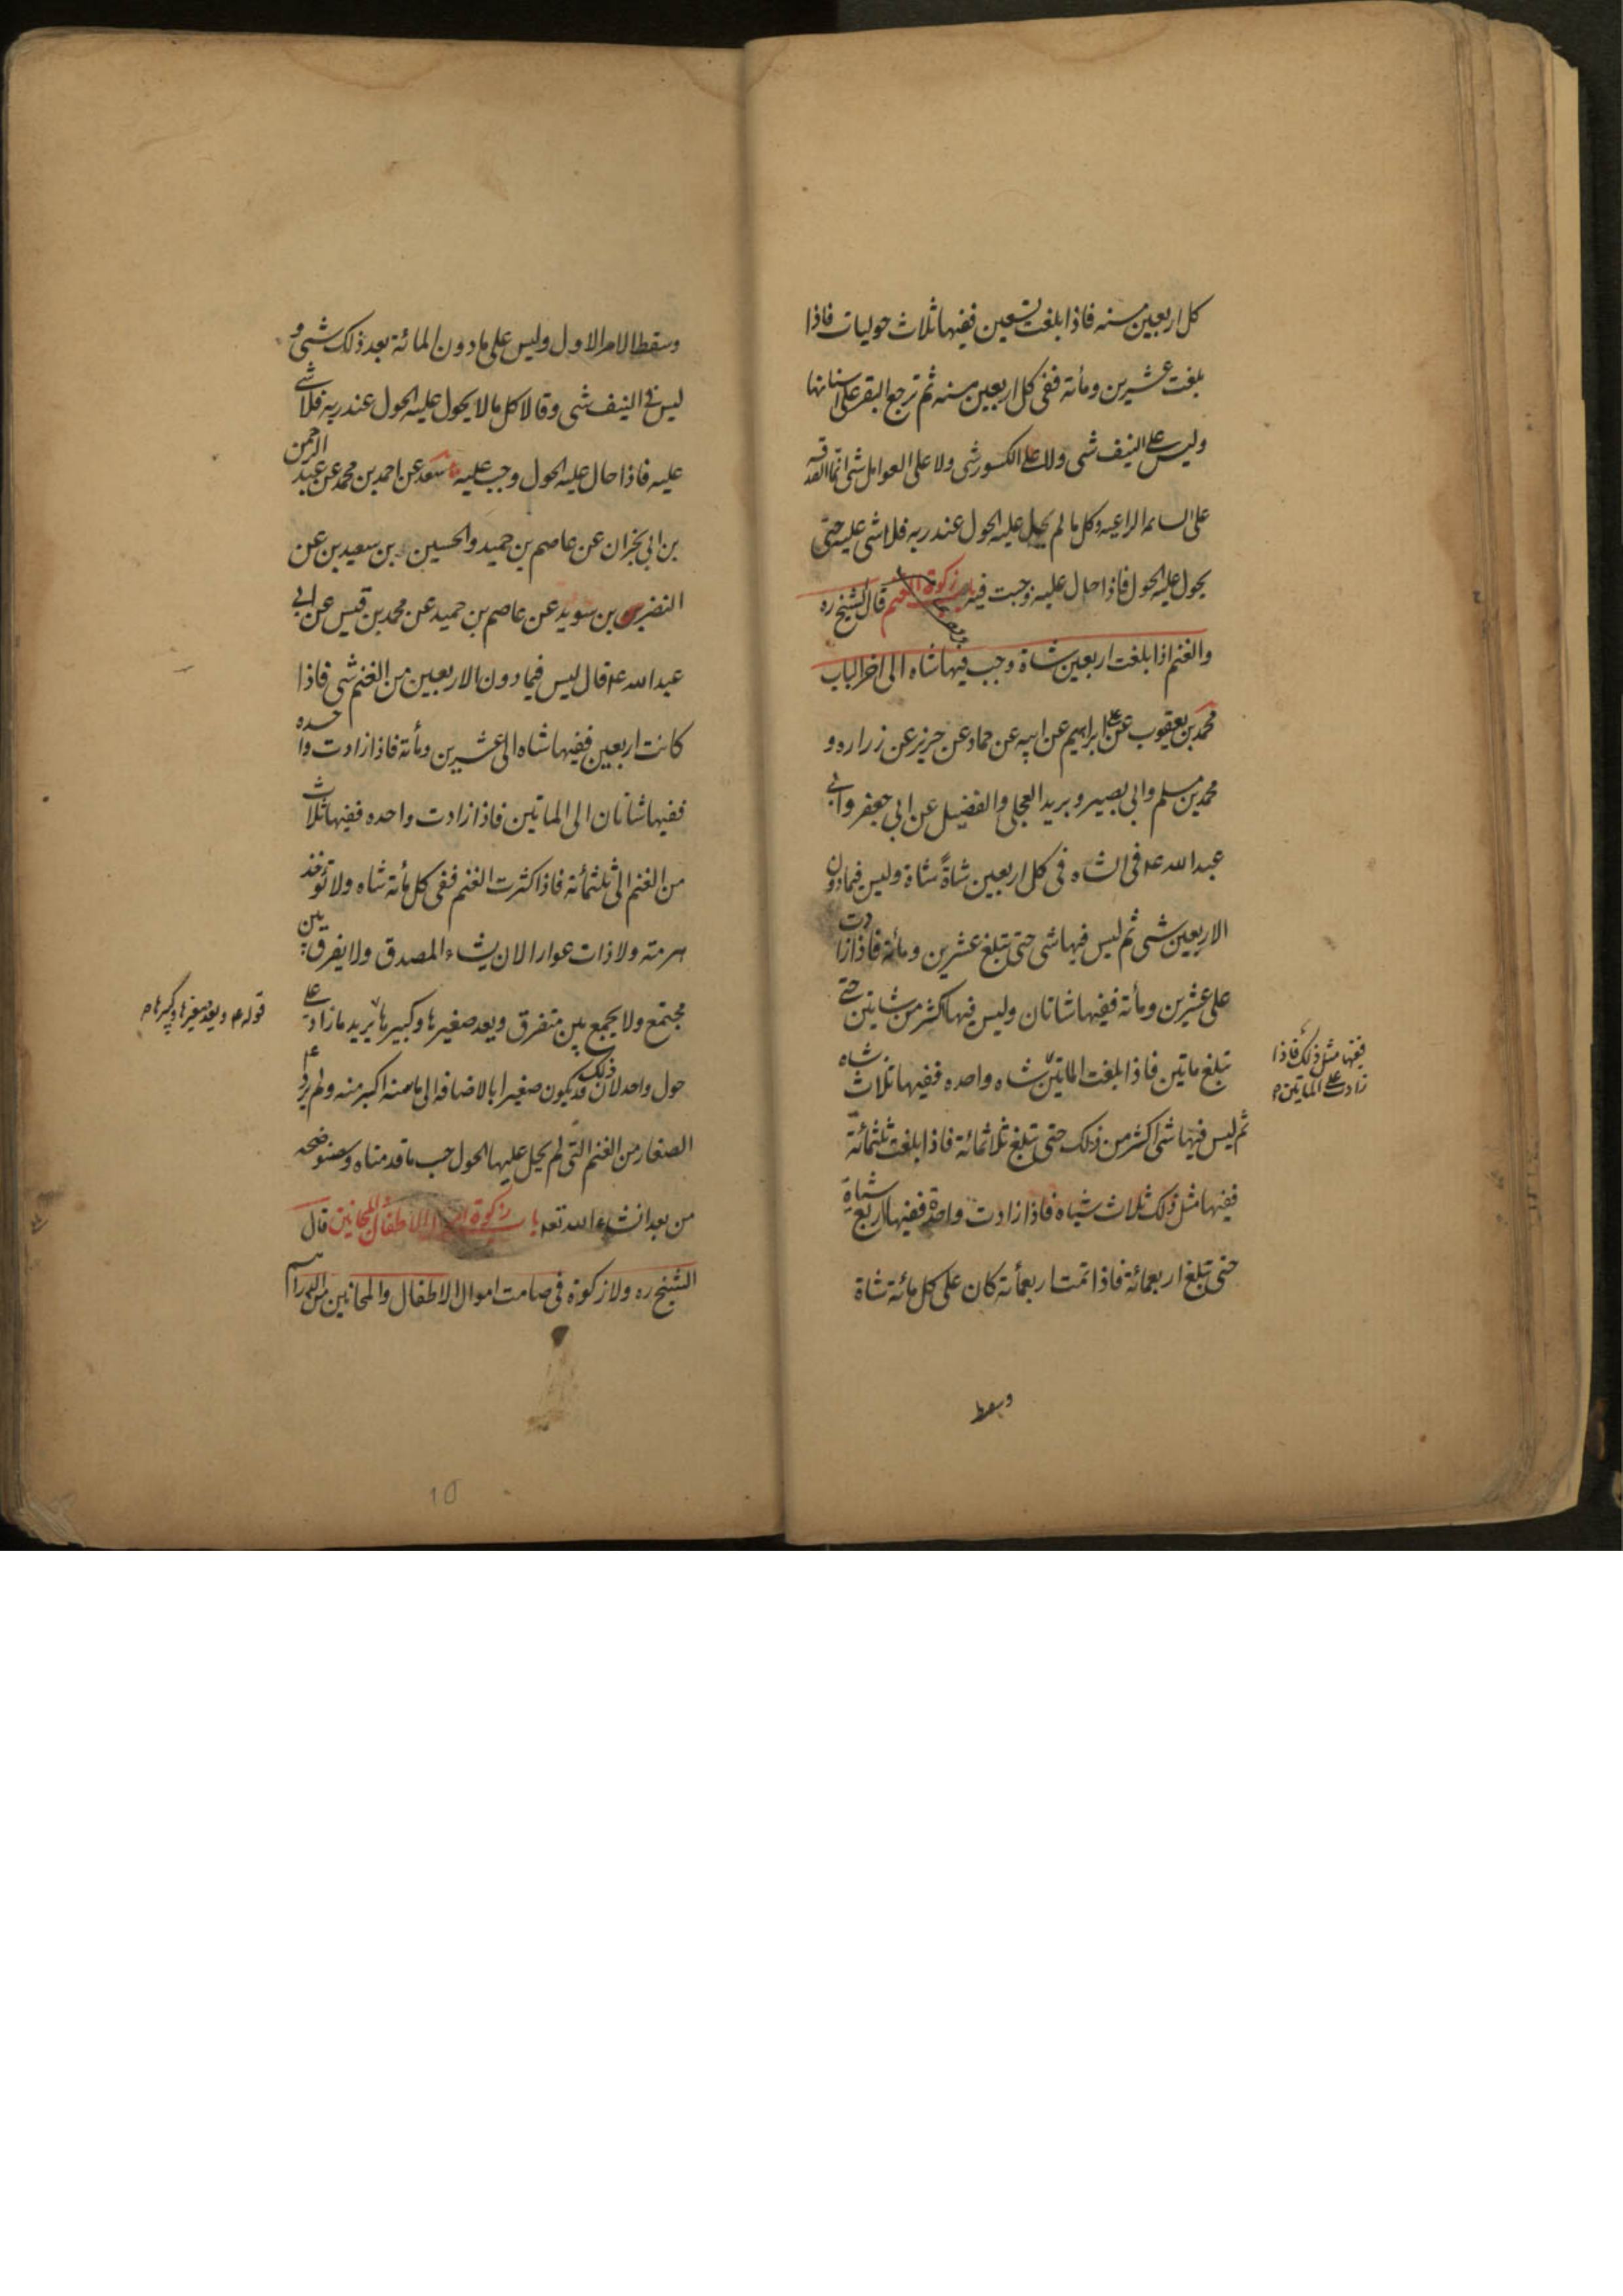 كل اربعين مسنه فاذا بلغت تسعين ففيها ثلاث حوليات فاذا
بلغت عشرين ومأته ففى كل اربعين مسنه ثم ترجع البقر على اسنانها
وليس على النيف شى ولا على الكسور شى ولا على العوامل شى انما الصدقه
على السائمه الراعيه وكل ما لم يحل عليه الحول عند ربه فلا شى عليه حتى
يحول عليه الحول فاذا حال عليه وجبت فيه زكوة الغنم قال الشيخ ره
والغنم اذا بلغت اربعين شاة وجب فيها شاه الى اخر الباب
محمد بن يعقوب عن على ابراهيم عن ابيه عن حماد عن حريز عن زراره و
محمد بن مسلم وابى بصير وبريد العجلى والفضيل عن ابى جعفر وابى
عبد الله ع فى الشاه فى كل اربعين شاةً شاة وليس فيما دون
الاربعين شى ثم ليس فيها شى حتى تبلغ عشرين ومأته فاذا زادت
على عشرين ومأته ففيها شاتان وليس فيها اكثر من شاتين حتى
تبلغ ماتين فاذا بلغت الماتين شاه واحده ففيها ثلاث شاه
ففيها مثل ذلك فاذا
زادت على الماتين
ثم ليس فيها شى اكثر من ذلك حتى تبلغ ثلاثمائة فاذا بلغت ثلثمائة
ففيها مثل ذلك ثلاث شياه فاذا زادت واحدة ففيها اربع شياة
حتى تبلغ اربعمائة فاذا تمت اربعمأته كان على كل مائة شاة
وسقط
وسقط الامر الاول وليس على ما دون المائة بعد ذلك شى و
ليس فى النيف شى وقالا كل مالا يحول عليه الحول عند ربه فلا شى
عليه فاذا حال عليه الحول وجب عليه سعد عن احمد بن محمد عن عبد الرحمن
بن ابى نجران عن عاصم بن حميد والحسين بن سعيد بن عن
النضر بن سويد عن عاصم بن حميد عن محمد بن قيس عن ابى
عبد الله ع قال ليس فيما دون الاربعين من الغنم شى فاذا
كانت اربعين ففيها شاه الى عشرين ومأته فاذا زادت واحده
ففيها شاتان الى الماتين فاذا زادت واحده ففيها ثلاث
من الغنم الى ثلثمأته فاذا كثرت الغنم ففى كل مأته شاه ولا تؤخذ
هرمته ولا ذات عوار الا ن يشاء المصدق ولا يفرق بين
مجتمع ولا يجمع بين متفرق ويعد صغيرها وكبيرها يريد ما زاد على
قوله ع ويعد صغيرها وكبيرها
حول واحد لان ذلك قد يكون صغيرا بالاضافه الى ما منه اكبر منه ولم يرد
الصغار من الغنم التى لم يحل عليها الحول حسب ما قدمناه وسنوضحه
من بعد انشاء الله تعه باب زكوة الاطفال والمجانين قال
الشيخ ره ولا زكوة فى صامت اموال الاطفال والمجانين من الدراهم
10